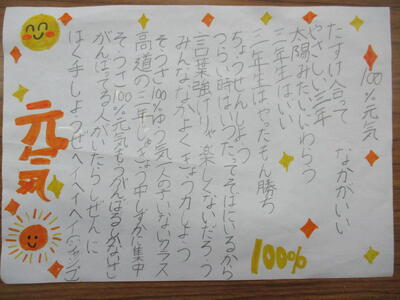 100%元気
たすけ合って なかがいい
やさしい三年
太陽みたいにわらう
三年生はいい
三年生はやったもん勝ち
ちょうせんしよう
つらい時はいつだってそばにいるから
言葉強けりゃ楽しくないだろう
みんななかよくきょう力しよう
そうさ100%ゆう気一人のさいないクラス
高道の三年じゅぎょう中しずかに集中
そうさ100%元気もうがんばるしかないさ
がんばってる人がいたらしぜんに
はく手しようぜヘイヘイヘイ(ジャンプ)
元気
100%